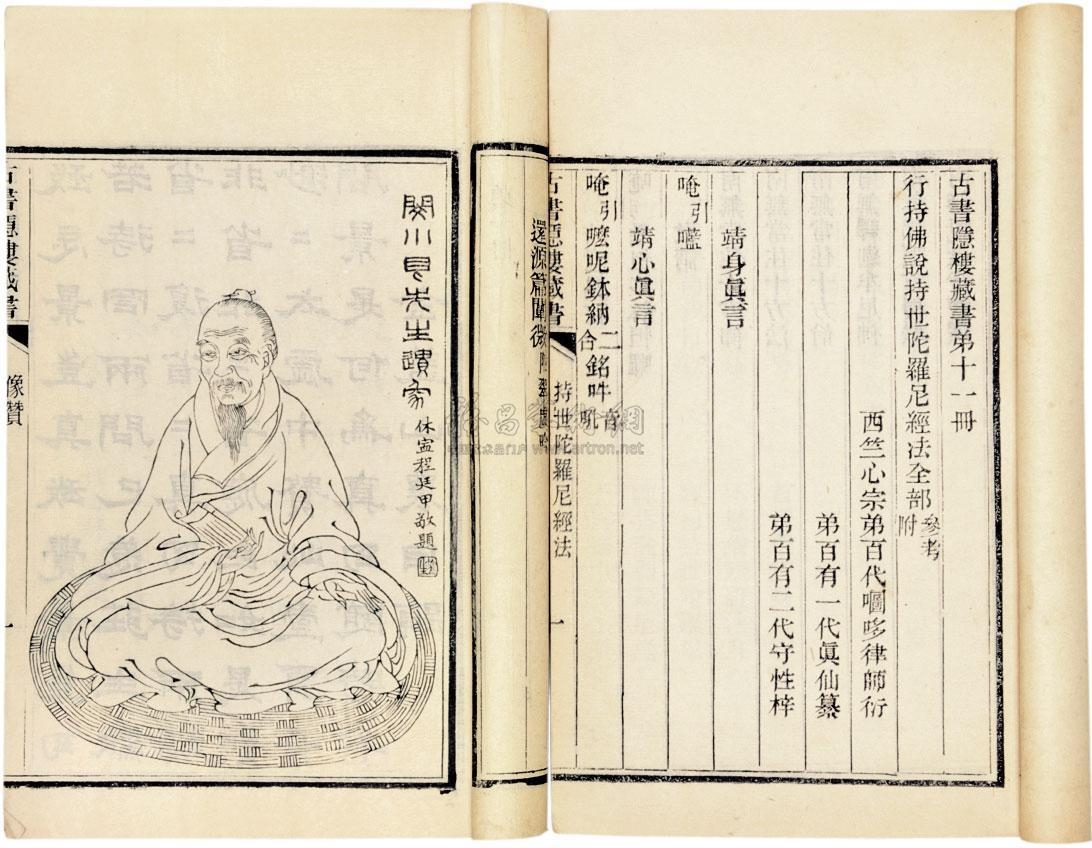 古書隱樓藏書弟十一冊
行持佛說持世陀羅尼經法全部
參考
附
西竺心宗弟百代嚪哆律師衍
弟百有一代眞仙纂
弟百有二代守性梓
靖身眞言
唵引嚂
靖心眞言
唵引嚂呢鉢納二合銘吽音吼
古書隱樓藏書
持世陀羅尼經法
一
還源篇闡微
先生遺象
休寍程廷甲敬題
古書隱樓藏書
像贊
一